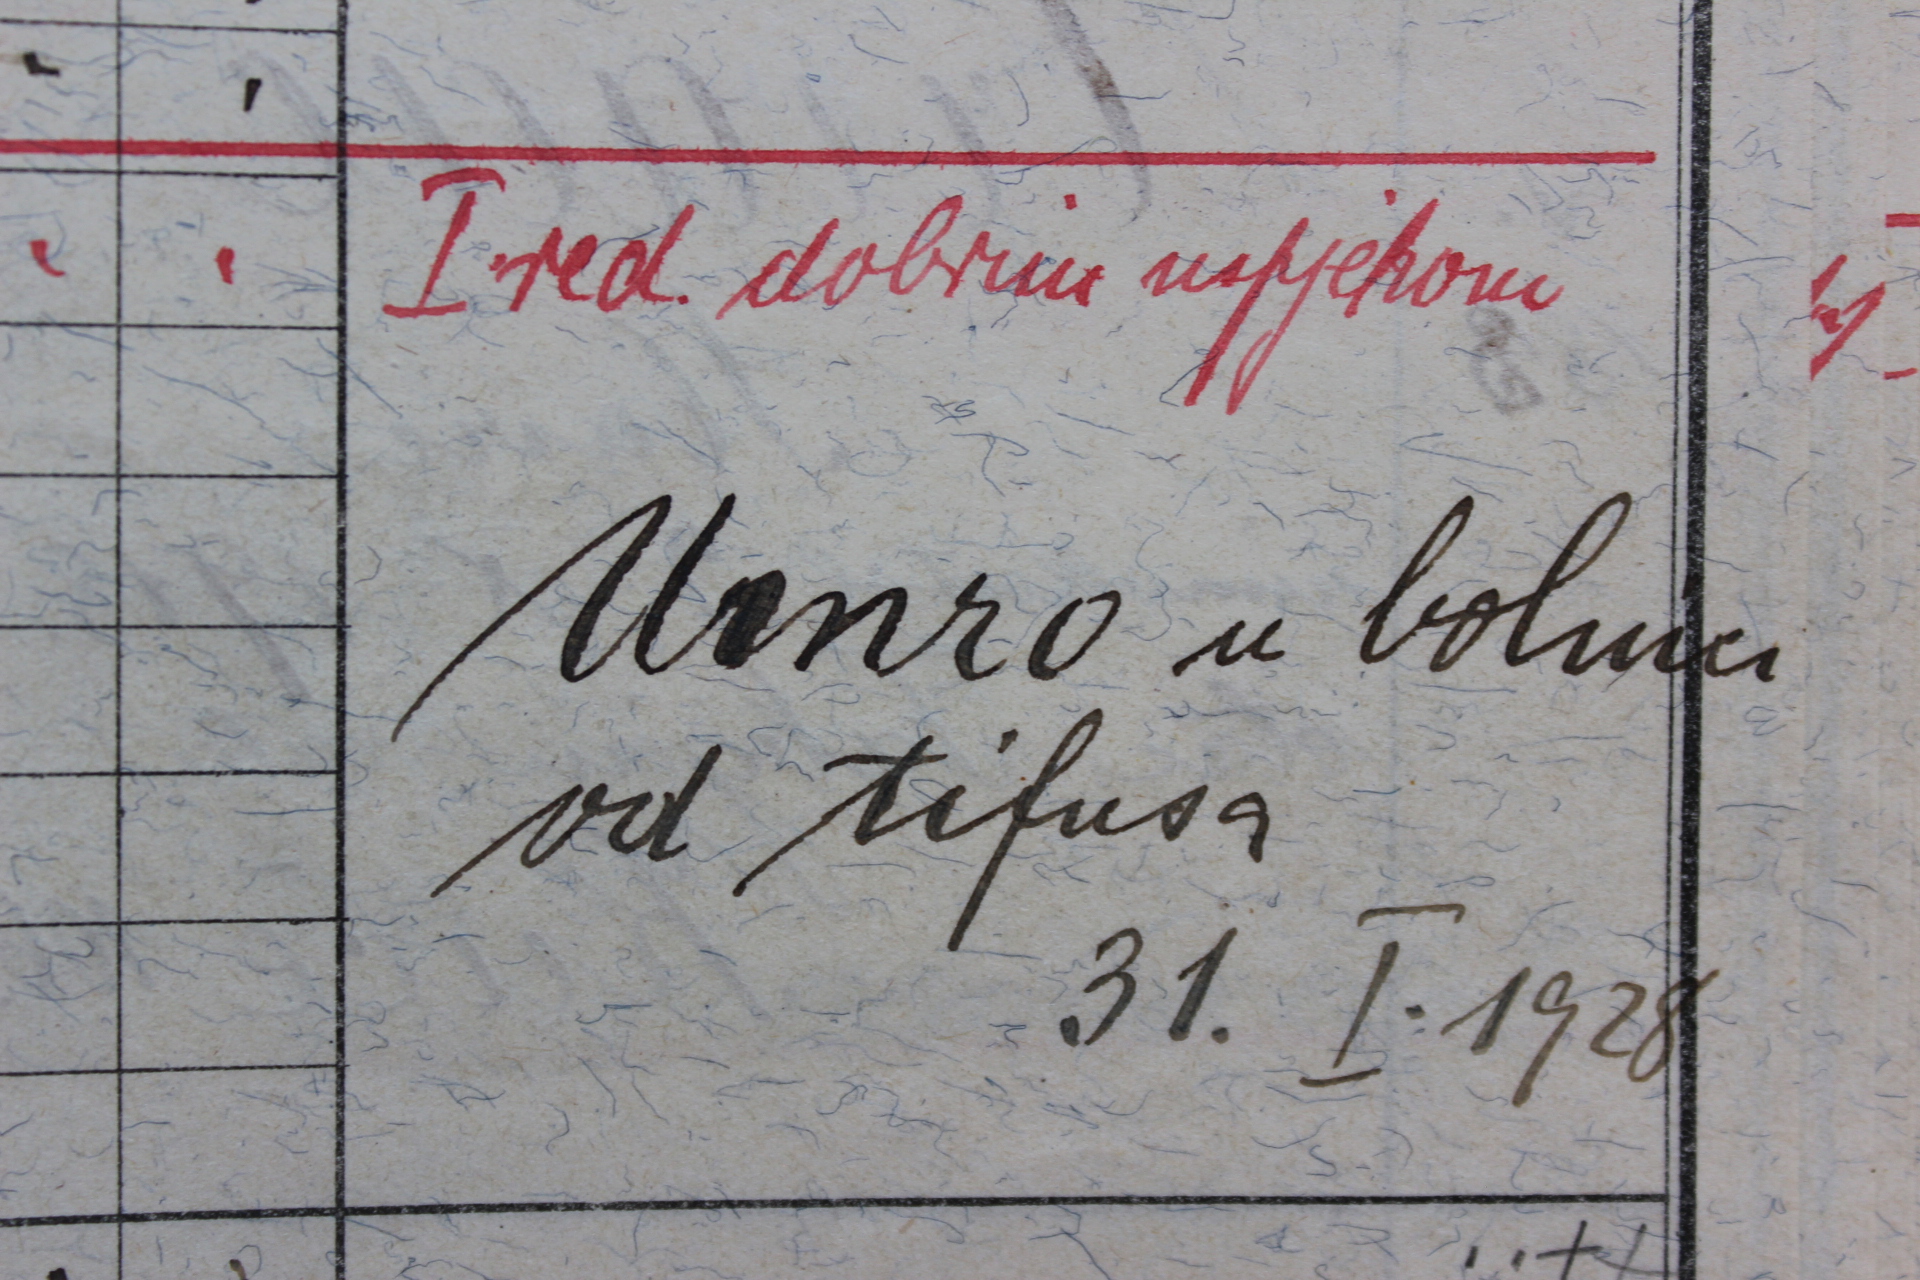 I. red. dobrim uspjehom
Umro u bolnici
od tifusa
31. I. 1928